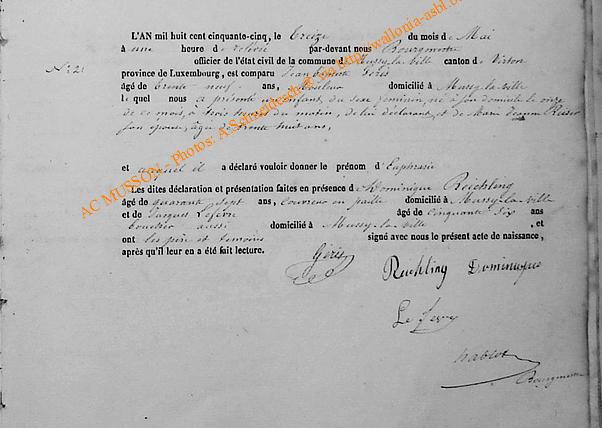 L'AN mil huit cent cinquante-cinq, le treize du mois de Mai
N° 2
à une heure de relevée par-devant nous Bourgmestre
officier de l'état civil de la commune de Mussy-la-Ville canton de Virton
province de Luxembourg, est comparu Jean Géris
âgé de trente-neuf ans, domicilié à Mussy-la-Ville
lequel nous a présenté un enfant du sexe féminin, né à son domicile le onze
de ce mois, à trois heures du matin, de lui déclarant, et de Marie Jeanne
son épouse, âgée de trente huit ans,
et auquel il a déclaré vouloir donner le prénom d'Euphrasie
Les dites déclaration et présentation faites en présence de Dominique Reichling
âgé de quarante sept ans, couvreur en paille domicilié à Mussy-la-Ville
et de Jacques Lefèvre âgé de cinquante six ans
aussi domicilié à Mussy-la-Ville, et
ont les père et témoins signé avec nous le présent acte de naissance,
après qu'il leur en a été fait lecture.
Géris
Reichling Dominique
Lefevre
Bourgmestre
AC MUSSON - Photos: A.Schneidesch © op http://wallonia-asbl.